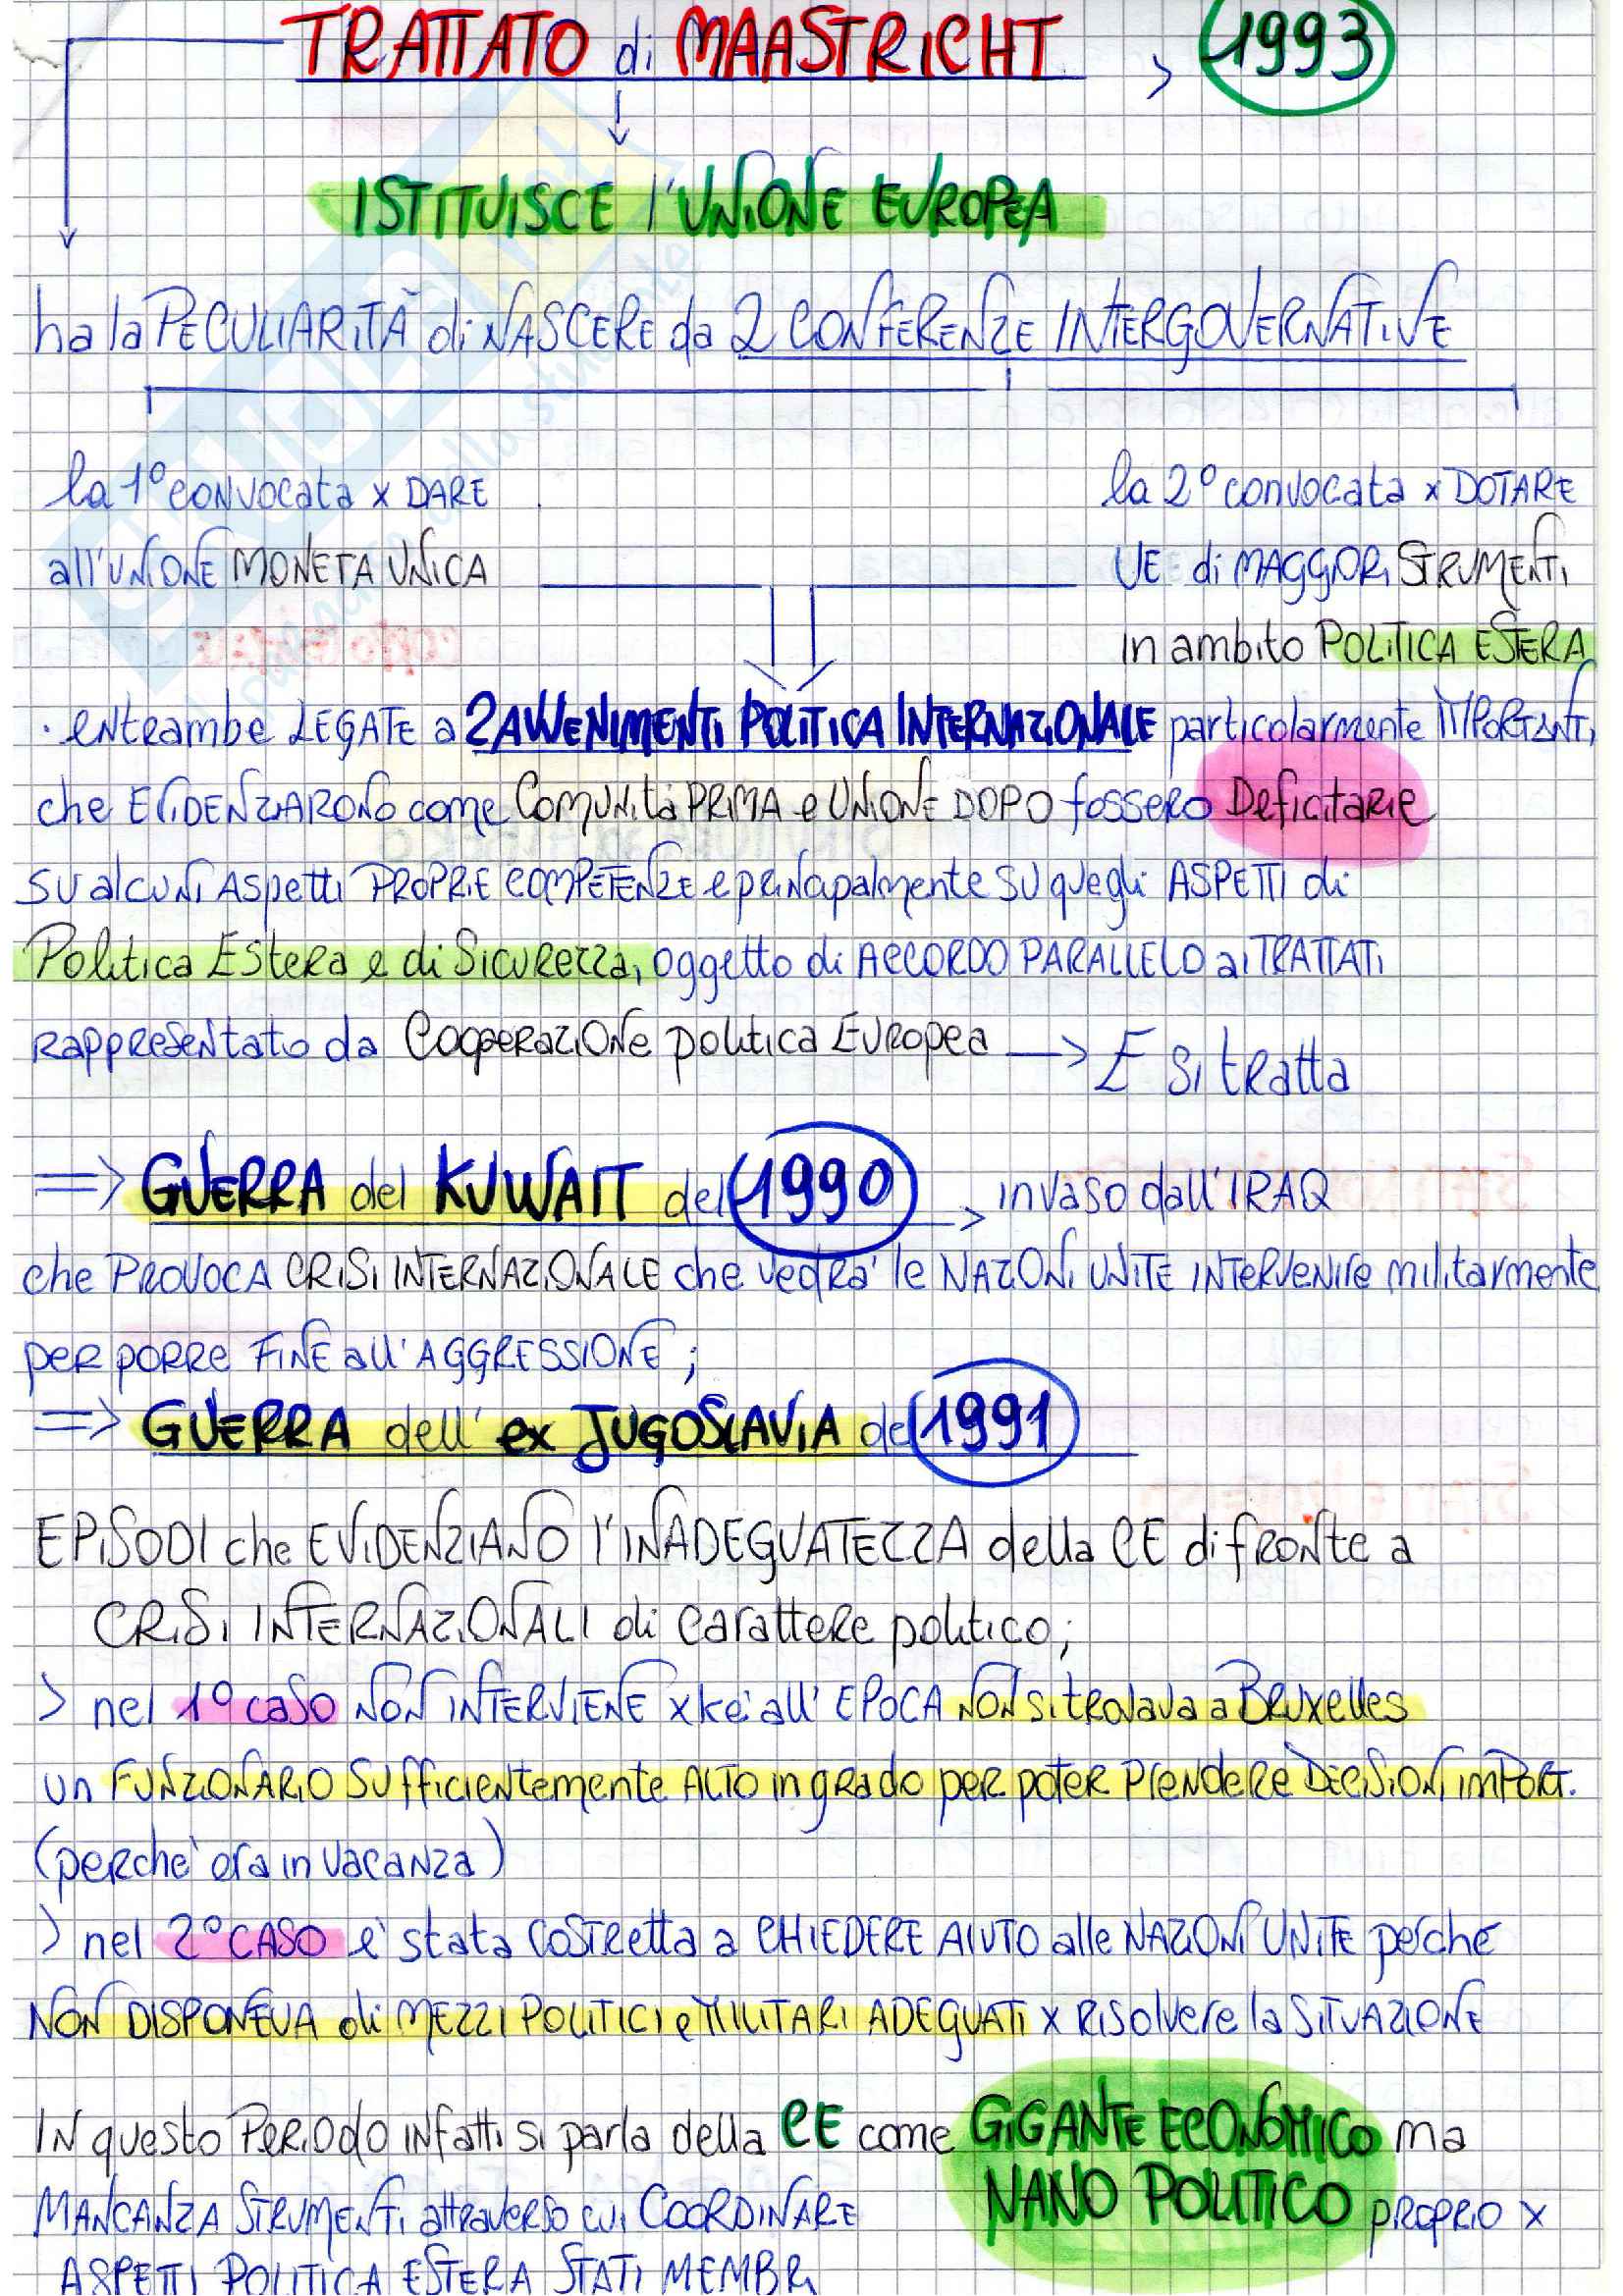 TRATTATO di MAASTRICHT > 1993
ISTITUISCE l'UNIONE EUROPEA
ha la PECULIARITÀ di NASCERE da 2 CONFERENZE INTERGOVERNATIVE
la 1° convocata x DARE
all'UNIONE MONETA UNICA
la 2° convocata x DOTARE
UE di MAGGIORI STRUMENTI
in ambito POLITICA ESTERA
· entrambe LEGATE a 2 AVVENIMENTI POLITICA INTERNAZIONALE particolarmente IMPORTANTI
che EVIDENZIARONO come COMUNITà PRIMA e UNIONE DOPO fossero Deficitarie
SU alcuni Aspetti PROPRIE COMPETENZE e principalmente su quegli ASPETTI di
Politica Estera e di Sicurezza, oggetto di ACCORDO PARALLELO ai TRATTATI
rappresentato da Cooperazione politica Europea —> E si tratta
=> GUERRA del KUWAIT del 1990 > invaso dall'IRAQ
che PROVOCA CRISI INTERNAZIONALE che vedra' le NAZIONI UNITE INTERVENIRE militarmente
per porre FINE all'AGGRESSIONE;
=> GUERRA dell' ex JUGOSLAVIA del 1991
EPISODI che EVIDENZIANO l'INADEGUATEZZA della CE di fronte a
CRISI INTERNAZIONALI di carattere politico;
> nel 1° caso NON INTERVIENE xke' all' EPOCA NON si trovava a Bruxelles
un FUNZIONARIO Sufficientemente ALTO in grado per poter Prendere DECISIONI IMPORT.
(perche' era in vacanza)
> nel 2° CASO e' stata costretta a CHIEDERE AIUTO alle NAZIONI UNITE perché
NON DISPONEVA di MEZZI POLITICI e MILITARI ADEGUATI x RISolvere la SITUAZIONE
IN questo PERIODO infatti si parla della CE come GIGANTE ECONOMICO ma
NANO POLITICO proprio x
MANCANZA STRUMENTI attraverso cui COORDINARE
ASPETTI POLITICA ESTERA STATI MEMBRI